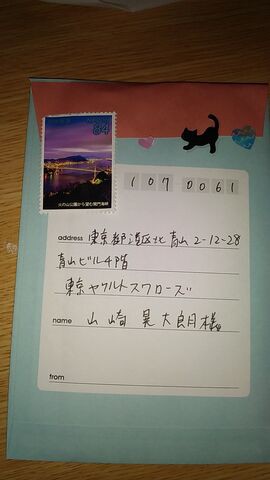 84
火の山公園から望む関門海峡
107 0061
address 東京都港区北青山 2-12-28
青山ビル4階
東京ヤクルトスワローズ
name 山崎晃大朗様
from